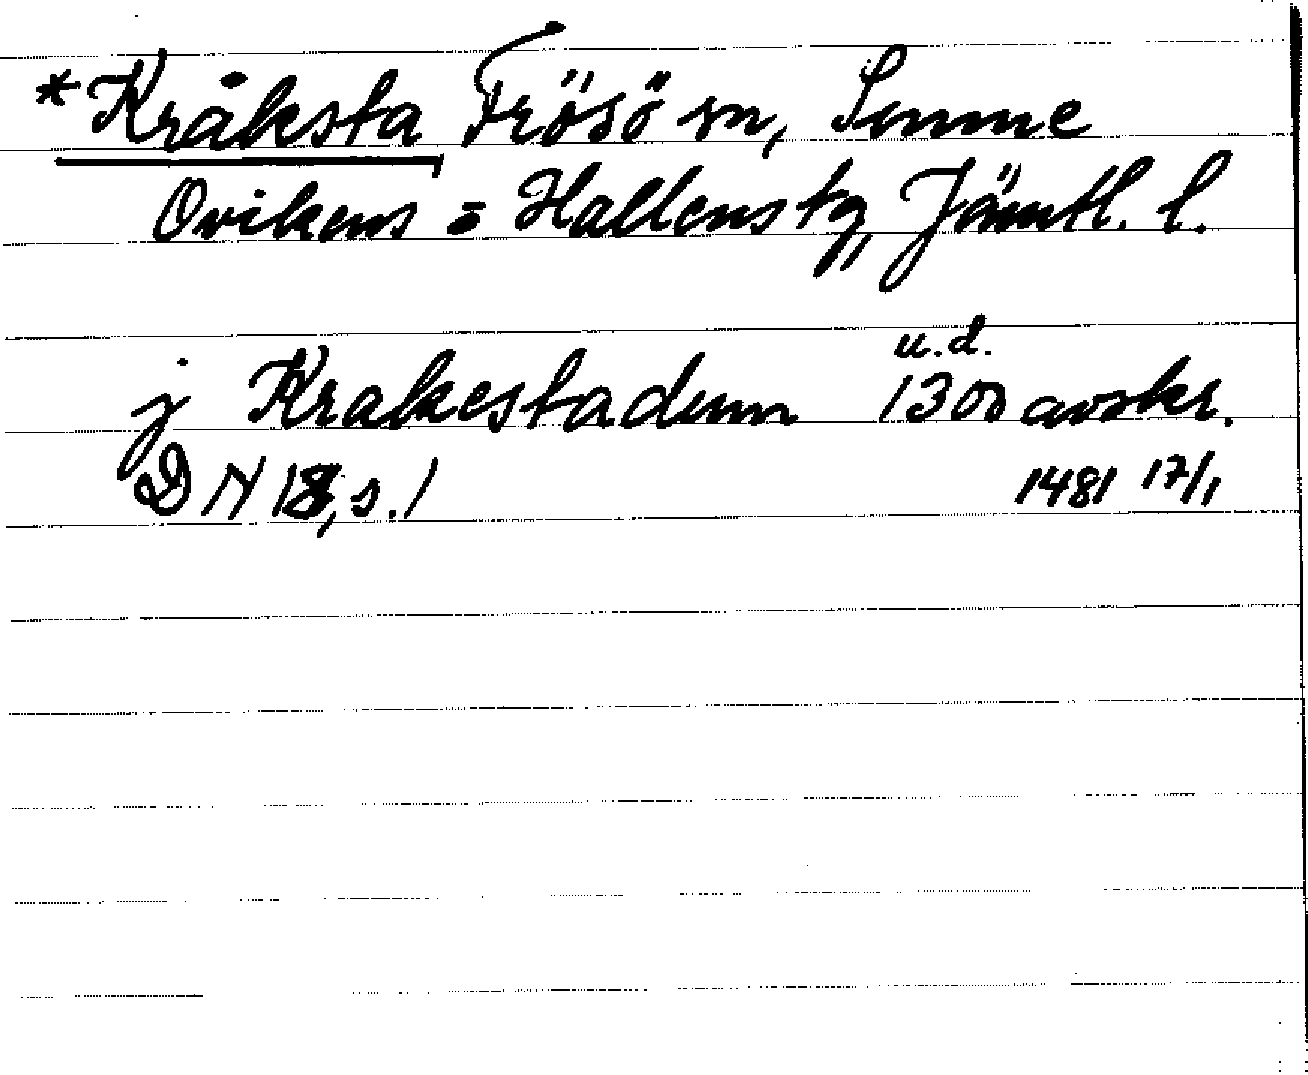 *Kråksta Frösö sn, Sunne
Ovikens = Hallens tg, Jämtl. l.
u.d.
j Krakestadum 1300 avskr.
DN 18, s. 1 1481 17/1